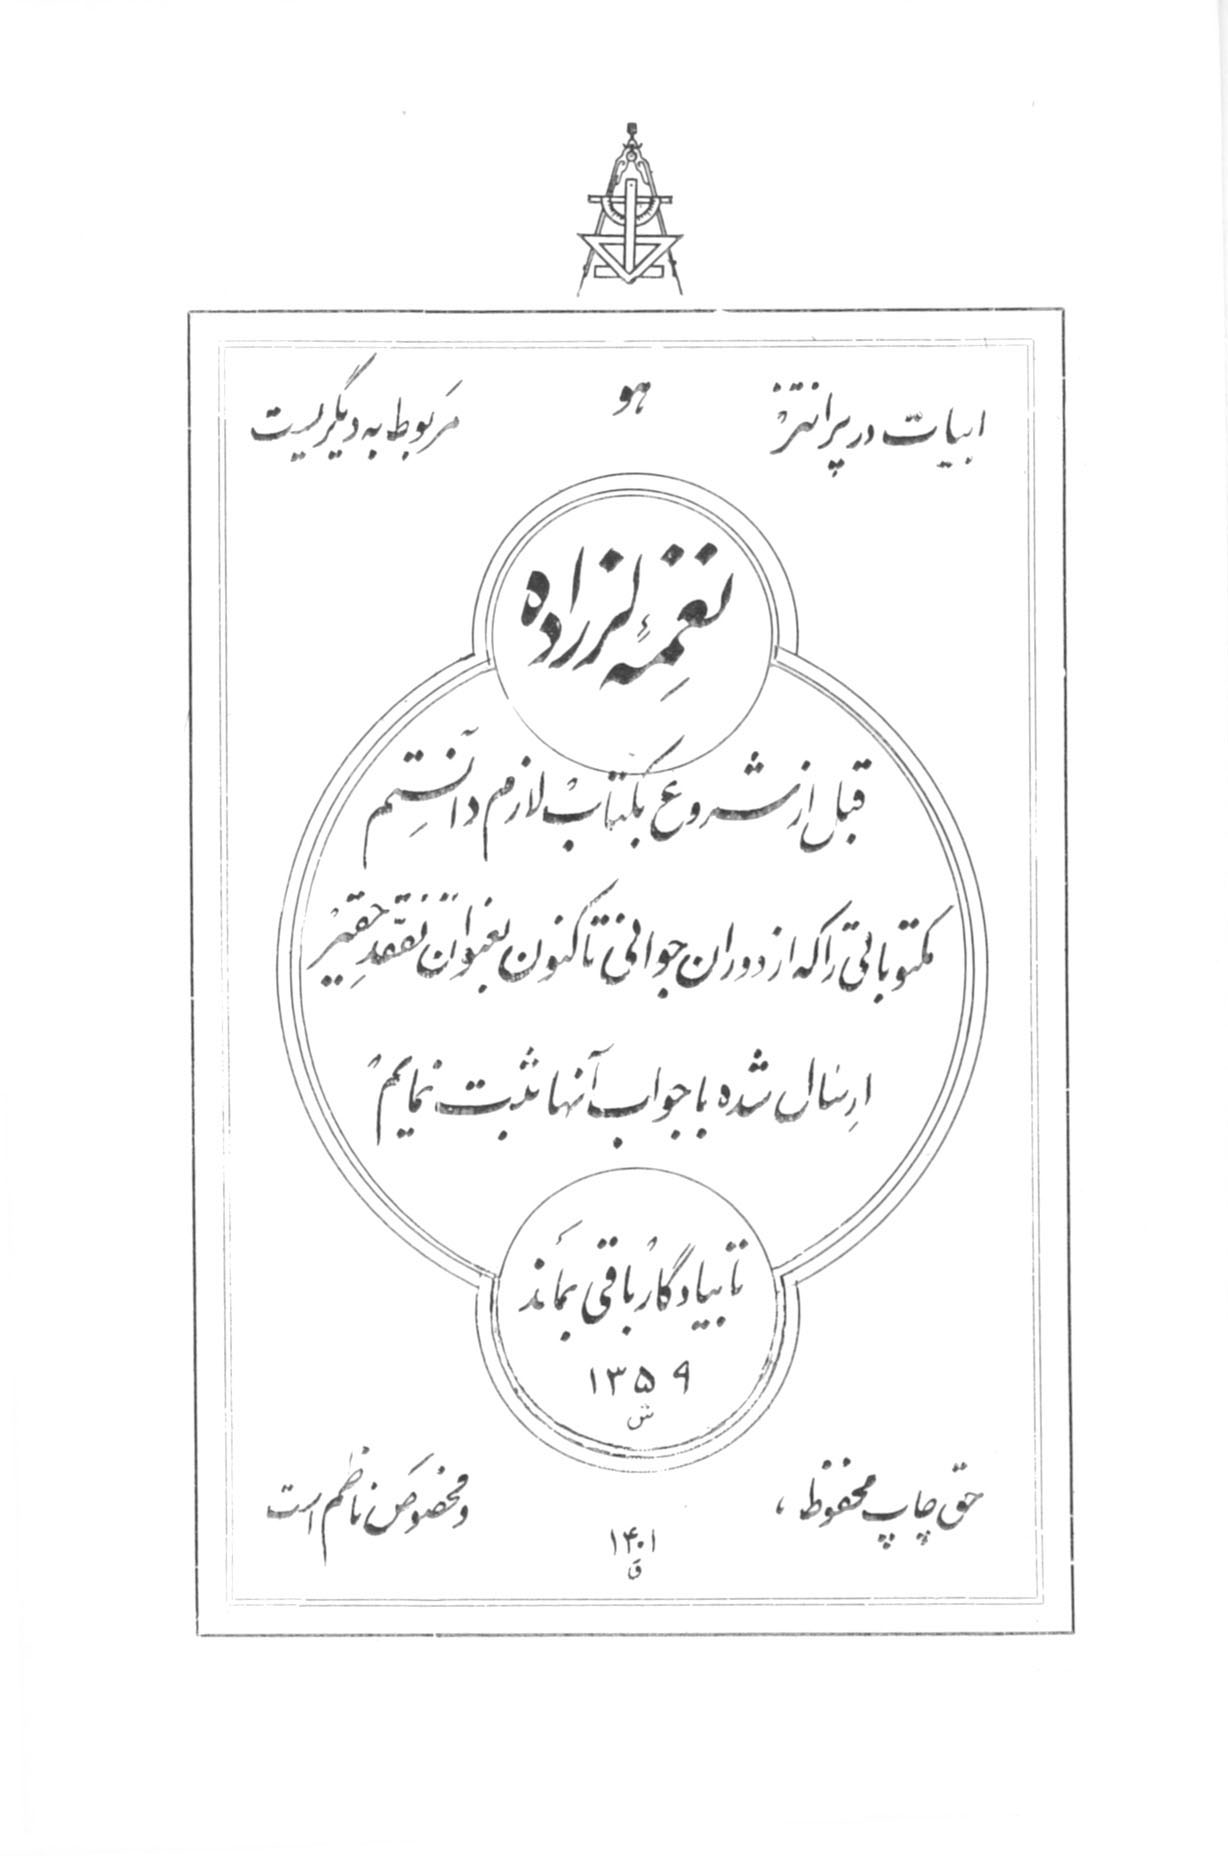 هو
ابیات در پرانتز
مربوط به دیگریست
نغمهٔ لرزاده
قبل از شروع بکتاب لازم دانستم
مکتوباتی را که از دوران جوانی تاکنون بعنوان تفقد حقیر
ارسال شده با جواب آنها ثبت نمایم
تا بیادگار باقی بماند
۱۳۵۹
ش
حق چاپ محفوظ ،
و مخصوص ناظم است
۱۴۰۱
ق